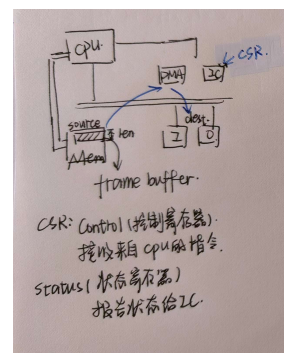 CPU.
CSR.
DMA
IC
source
len
dest.
Mem
I
O
frame buffer.
CSR: Control (控制寄存器).
接收来自 CPU 的指令.
status (状态寄存器)
报告状态给 IC.